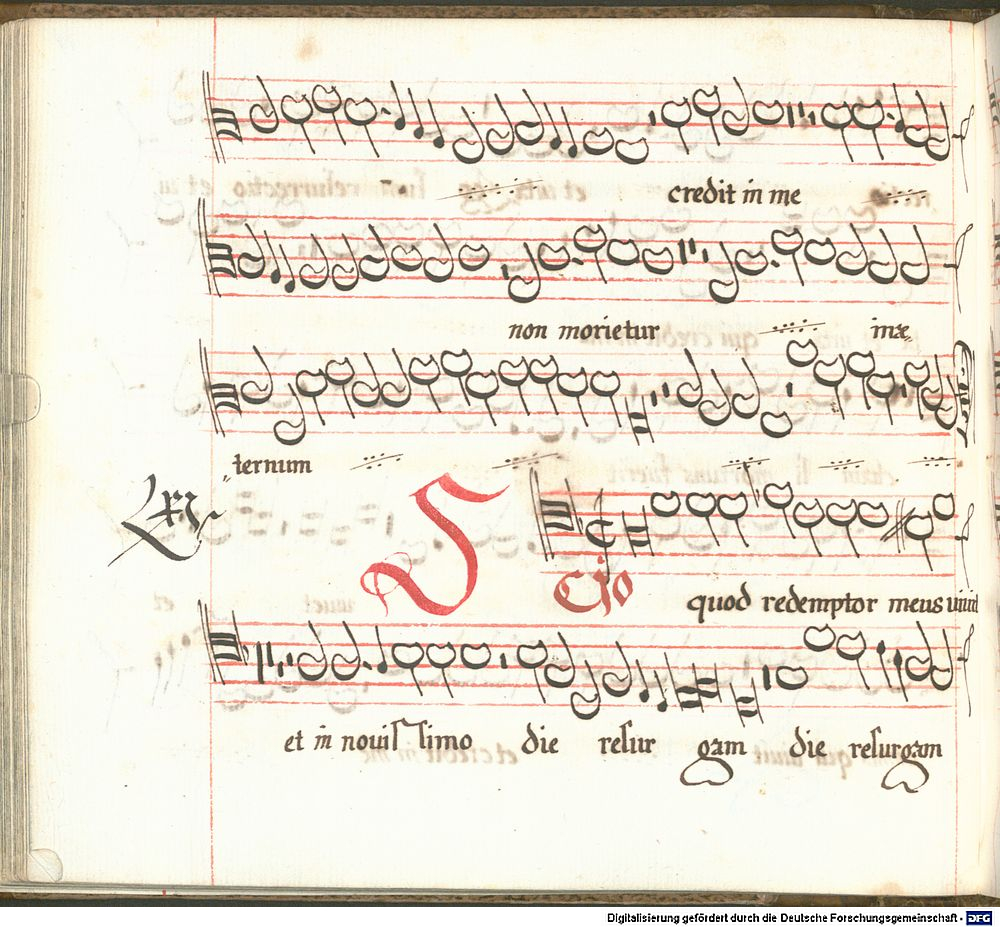 credit in me
non morietur inæ„
„ternum
Lxv
S Cio quod redemptor meus
et in nouissimo die resurgam die resurgam
Digitalisierung gefördert durch die Deutsche Forschungsgemeinschaft - DFG